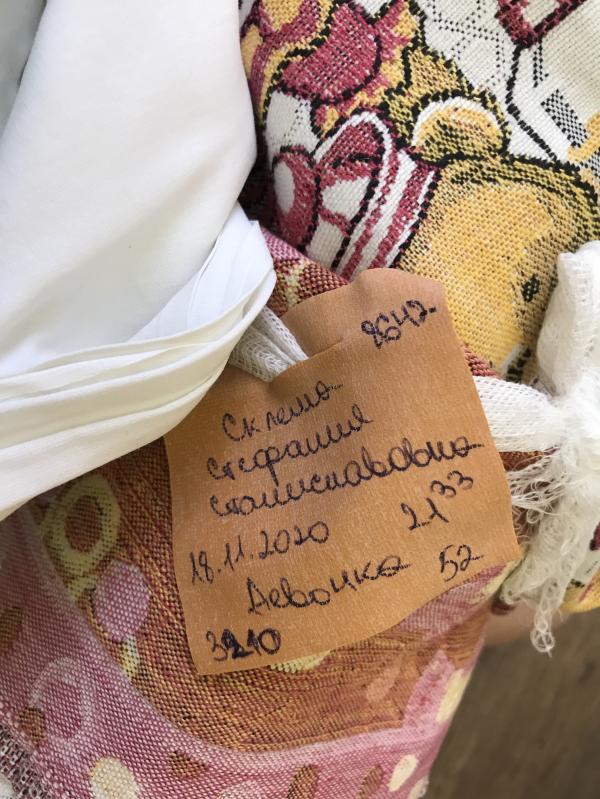 8642
Склема
Стефания
Станиславовна
18.11.2020 21 33
Девочка 52
3210